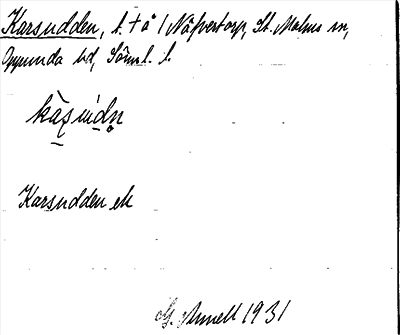 Karsudden, t. + å / Näfvertorp, St. Malms sn,
Oppunda hd, Söml. l.
Karsudden ek
G. Annell 1931